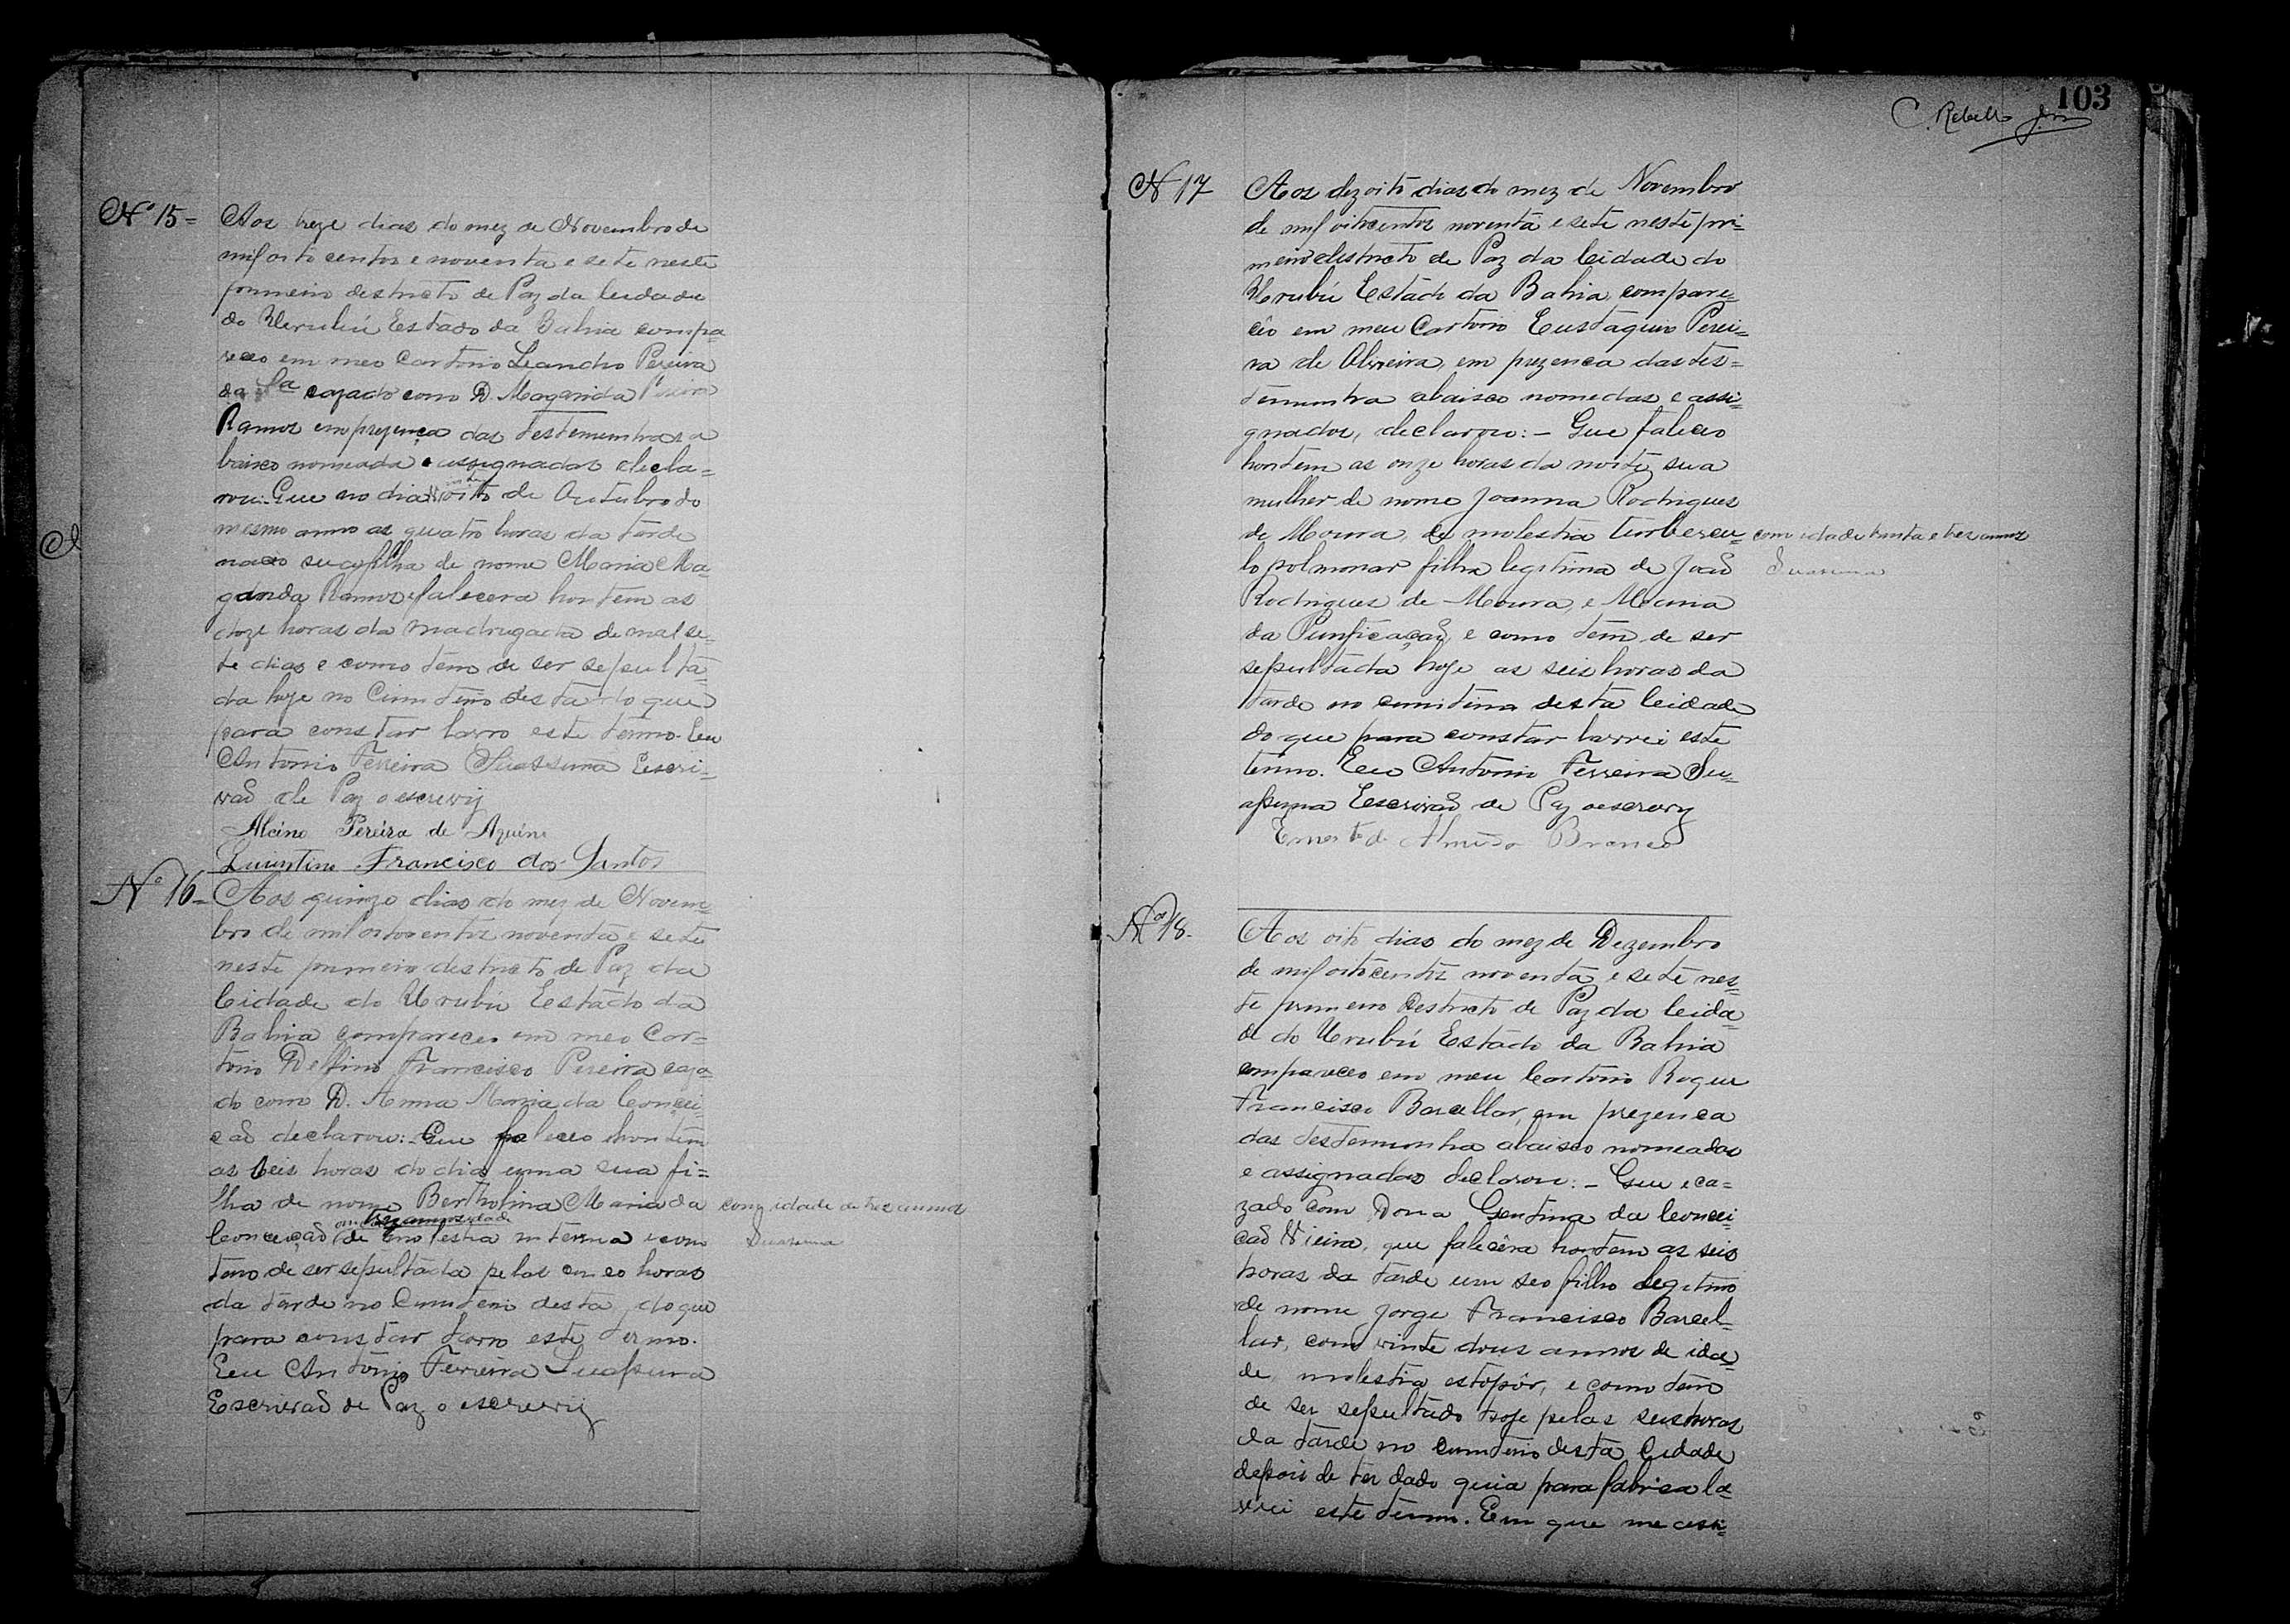 Nº 15 =
Aos treze dias do mez de Novembro de
mil oito centos e noventa e sete neste
primeiro destricto de Paz da Cidade
do Urubú Estado da Bahia compa=
receo em meo Cartorio Leandro Pereira
da cazado com D. Magarida
Ramos em prezença das testemunhas a
baixo nomeada e assignadas decla=
rou: Que no dia oito de Outubro do
mesmo anno as quatro horas da tarde
naceo sua filha de nome Maria Ma=
garida Ramos e falecera hontem as
doze horas da madrugada de mal se=
te dias e como tem de ser sepulta=
da hoje no Cimiterio desta do que
para constar lavro este termo. Eu
Antonio Ferreira Suassuna Escri=
vaõ de Paz o escrevy
Alcino Pereira de Aquino
Quintino Francisco dos Santos
Nº 16 =
Aos quinze dias do mez de Novem=
bro de mil oitocentos noventa e sete
neste primeiro destricto de Paz da
Cidade do Urubú Estado da
Bahia compareceo em meo Car=
torio Delfino Francisco Pereira caza=
do com D. Anna Maria da Concei=
caõ declarou: Que faleceo hontem
as seis horas do dia uma sua fi=
lha de nome Bertholina Maria da
com idade de tres annos
Conceiçaõ de molestia interna e com
Suassuna
tem de ser sepultada pelas cinco horas
da tarde no Cimiterio desta, do que
para constar lavro este termo.
Eu Antonio Ferreira Suassuna
Escrivaõ de Paz o escreviy
103
C. Rebello
N 17
Aos dezoito dias do mez de Novembro
de mil oitocentos noventa e sete neste pri=
meiro destricto de Paz da Cidade do
Urubú Estado da Bahia, compare=
ceo em meu Cartorio Eustaquio Perei=
ra de Oliveira, em prezenca das tes=
temunha abaixo nomedas e assi=
gnados, declarou: - Que faleceo
hontem as onze horas da noite, sua
mulher de nome Joanna Rodrigues
de Moura, de molestia turbercu=
com idade trinta e tres annos
lo polmonar filha legitima de Joaõ
Suassuna
Rodrigues de Moura, e Maria
da Purificaçaõ, e como tem de ser
sepultada hoje as seis horas da
tarde no cimiterio desta Cidade
do que para constar lavrei este
termo. Eu Antonio Ferreira Su=
assuna Escrivaõ de Paz o escrevy
Ernesto de Branco
Nº 18.
Aos oito dias do mez de Dezembro
de mil oitocentos noventa e sete nes=
te primeiro Destricto de Paz da Cida=
de do Urubú Estado da Bahia
compareceo em meu Cartorio Roque
Francisco Barcellar, em prezenca
das testemunha abaixo nomeados
e assignados declarou: - Que e ca=
zado com Dona Gentina da Concei=
caõ Vieira, que falecêra hontem as seis
horas da tarde um seo filho legitimo
de nome Jorge Francisco Barcel=
lar, com vinte dous annos de ida=
de, molestia estopôr, e como tem
de ser sepultado hoje pelas seis horas
da tarde no cimiterio desta Cidade
depois de ter dado guia para fabrica la=
vrei este termo. Em que me assi=